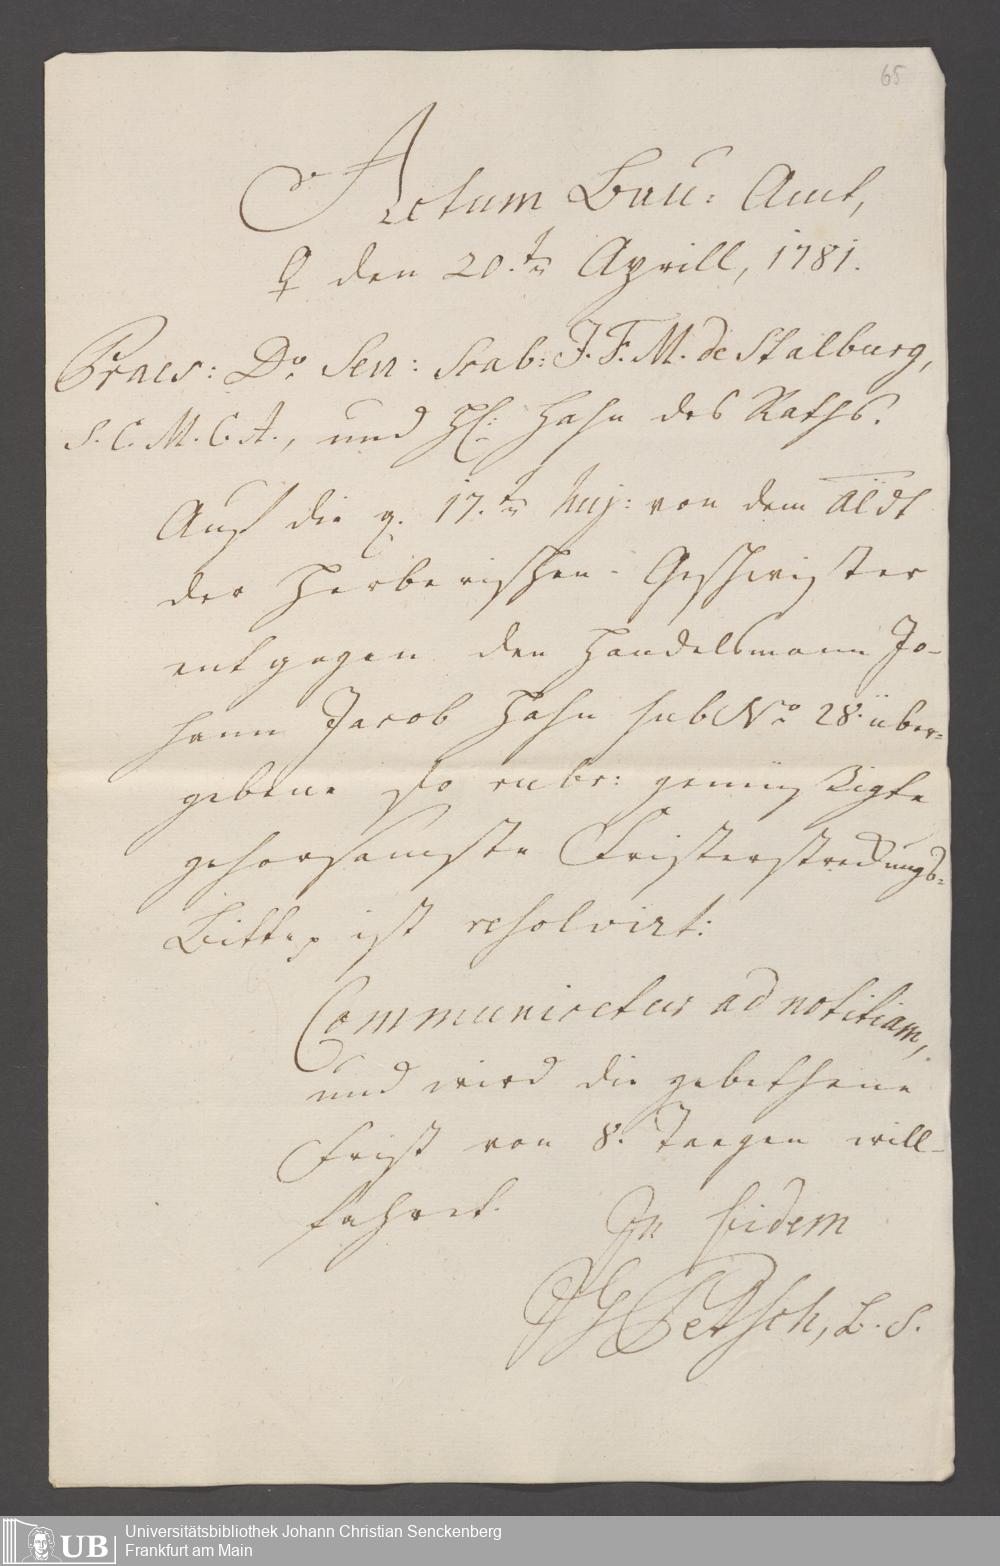 65
Actum Bau: Amt,
♀ den 20.ten Aprill, 1781.
Praes: Do. Sen: Scab: J. F. M. de Stalburg,
S. C. M. C. A., und H: Hahn des Raths.
Auf die q. 17.ten huj: von dem
der Herberischen Geschwister
entgegen den Handelsmann Jo-
hann Jacob Hahn sub No. 28. über-
gebene so rubr: gemüßigte
gehorsamste Fristerstreckungs-
Bitte, ist resolvirt:
Communicetur ad notitiam,
und wird die gebethene
Frist von 8. Taagen will-
fahret.
In fidem
Petsch, L. S.
UB
Universitätsbibliothek Johann Christian Senckenberg
Frankfurt am Main